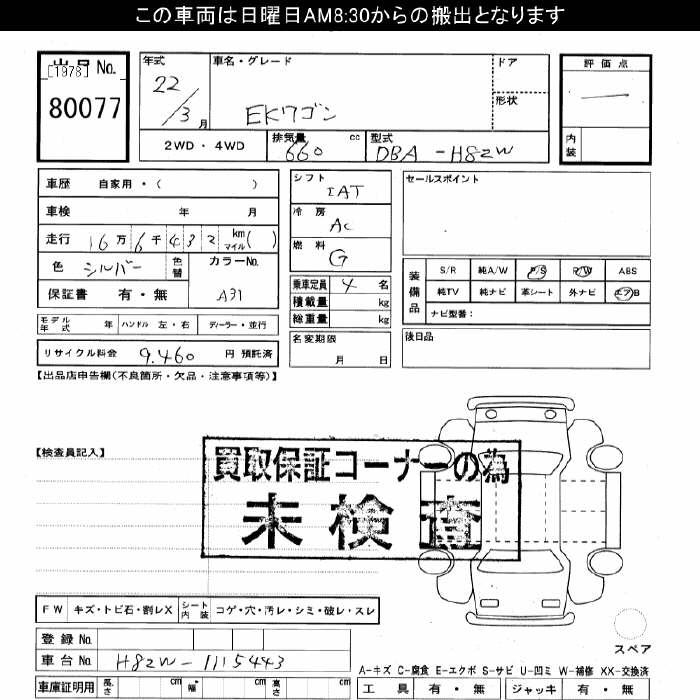 この車両は日曜日AM8:30からの搬出となります
出品 No.
[1978]
80077
年式
22/3月
車名・グレード
EKワゴン
ドア
形状
評価点
内装
2WD・4WD
排気量 660 cc
型式 DBA-H82W
車歴 自家用・( )
車検 年 月
走行 16万6千432 km マイル( )
色 シルバー 色替
カラーNo. A31
保証書 有・無
シフト IAT
冷房 AC
燃料 G
乗車定員 4 名
積載量 kg
総重量 kg
名変期限 月 日
セールスポイント
装備品
S/R 純A/W P/S P/W ABS
純TV 純ナビ 革シート 外ナビ エアB
ナビ型番:
後日品
モデル年式 年 ハンドル 左・右 ディーラー・並行
リサイクル料金 9,460 円 預託済
【出品店申告欄(不良箇所・欠品・注意事項等)】
【検査員記入】
買取保証コーナーの為
未検査
FW キズ・トビ石・割レX シート内装 コゲ・穴・汚レ・シミ・破レ・スレ
登録 No.
車台 No. H82W-1115443
車庫証明用 長さ cm 幅 cm 高さ cm
スペア
A-キズ C-腐食 E-エクボ S-サビ U-凹ミ W-補修 XX-交換済
工具 有・無 ジャッキ 有・無